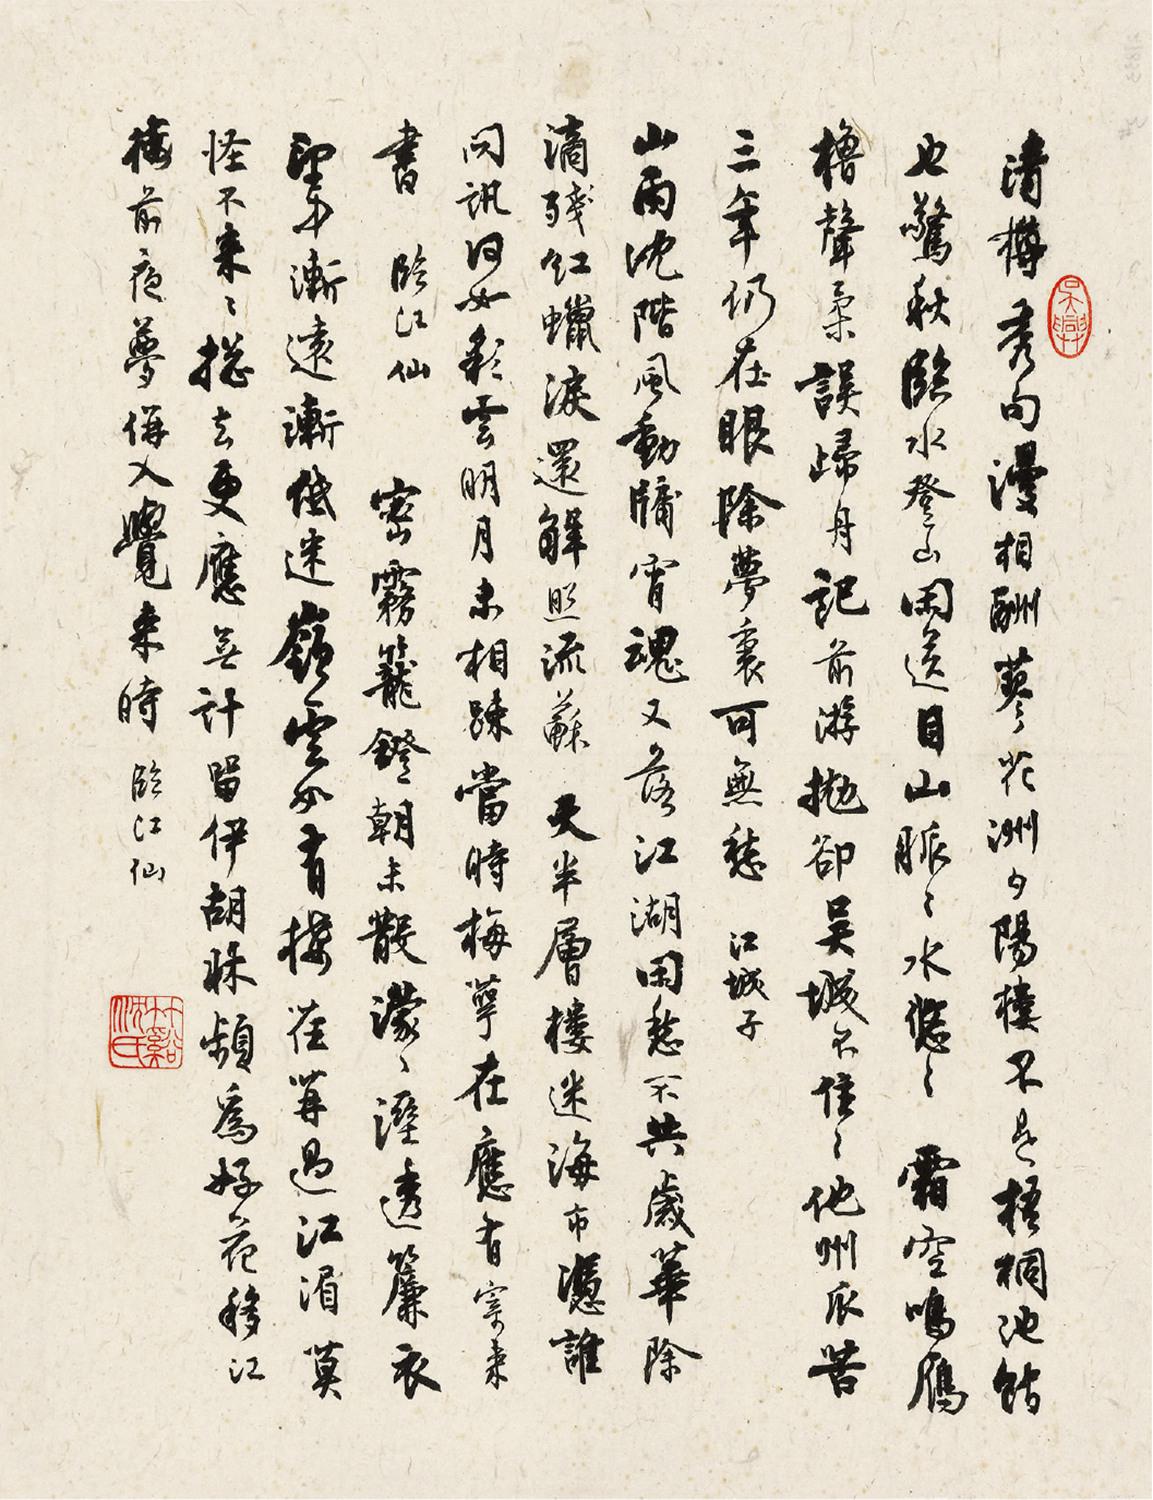 清樽秀句漫相酬蓼花洲夕陽樓不是梧桐池館
也驚秋臨水登山閑送目山脈〻水悠〻霜空鳴雁
櫓聲柔誤歸舟記前游拋卻吳城不住〻他州瓜苦
三年仍在眼除夢裏可無愁江城子
山雨沈階風動牖宵魂又落江湖閑愁不共歲華除
滴殘紅蠟淚還解照流蘇天半層樓迷海市憑誰
問訊何如彩雲明月未相疎當時梅萼在應有寄來
書臨江仙密霧籠鐙朝未散濛〻溼透簾衣
望中漸遠漸低迷嶺雲如有樓莫過江湄莫
怪不來〻摠去更應無計留伊胡牀頻為好花移江
樓前夜夢併入覺來時臨江仙
吳興
竹谿沈氏